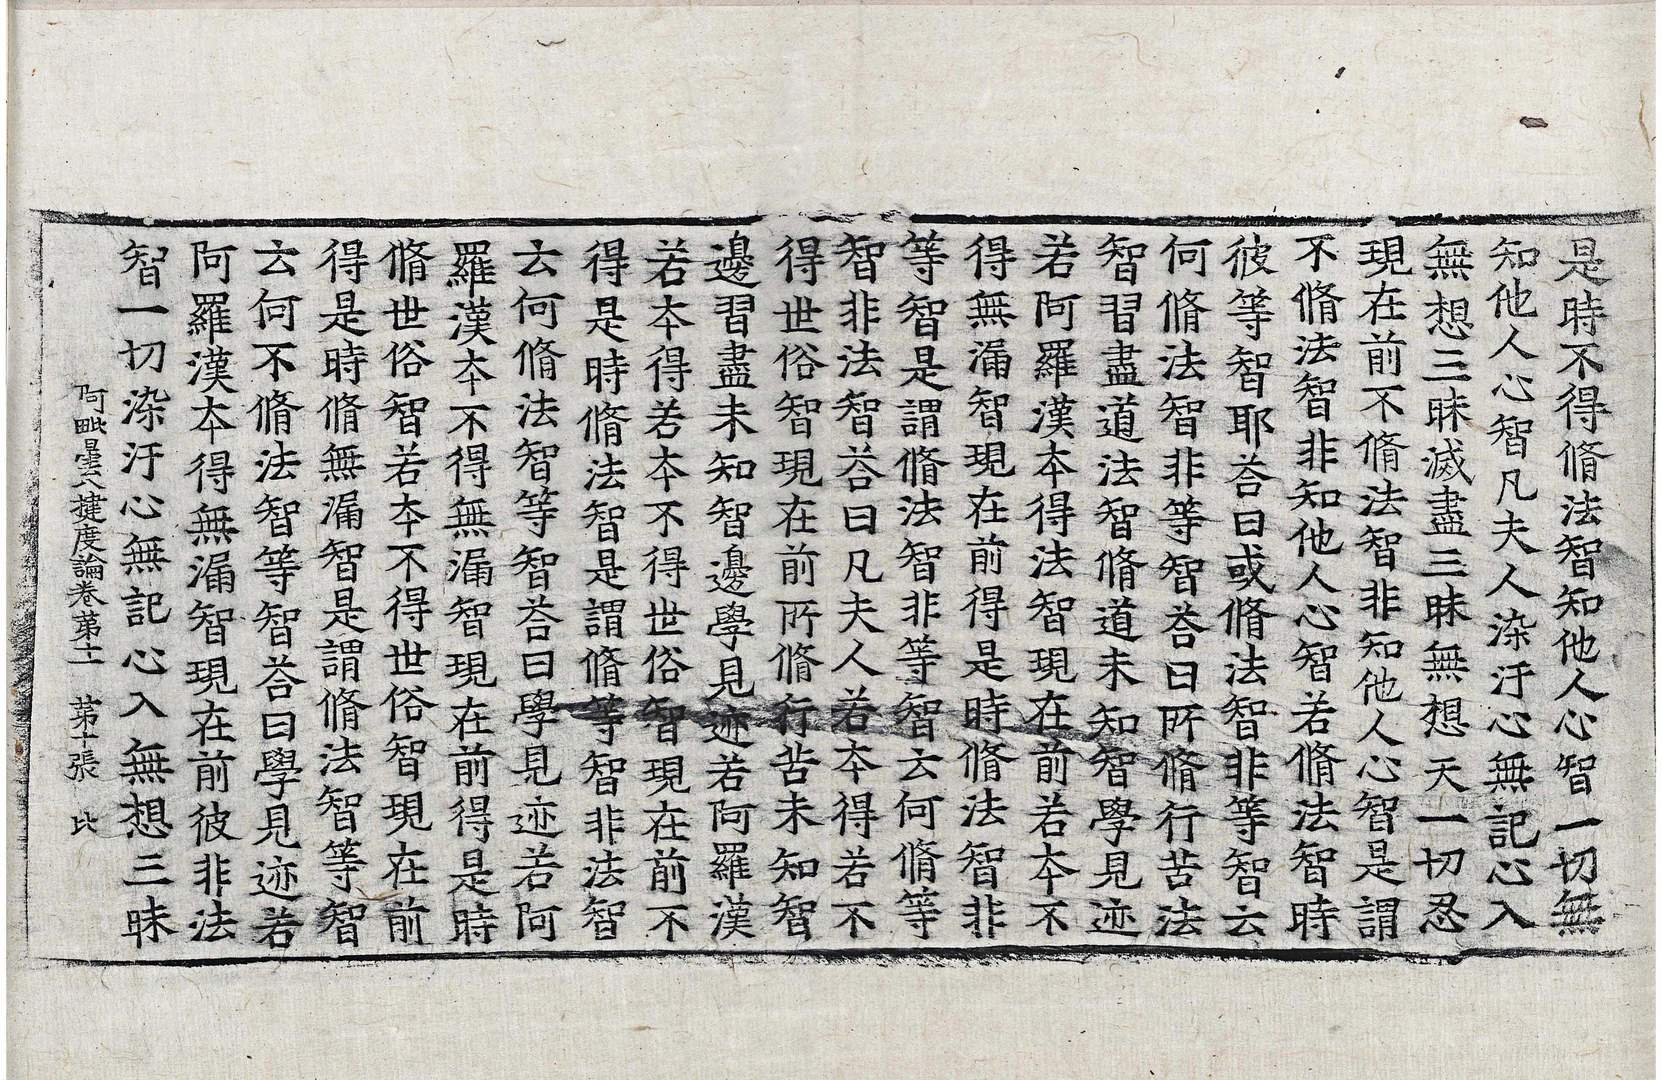 是時不得脩法智知他人心智一切無
知他人心智凡夫人染汙心無記心入
無想三昧滅盡三昧無想天一切忍
現在前不脩法智非知他人心智是謂
不脩法智非知他人心智若脩法智時
彼等智耶荅曰或脩法智非等智云
何脩法智非等智荅曰所脩行苦法
智習盡道法智脩道未知智學見迹
若阿羅漢本得法智現在前若本不
得無漏智現在前得是時脩法智非
等智是謂脩法智非等智云何脩等
智非法智荅曰凡夫人若本得若不
得世俗智現在前所脩行苦未知智
邊習盡未知智邊學見迹若阿羅漢
若本得若本不得世俗智現在前不
得是時脩法智是謂脩等智非法智
云何脩法智等智荅曰學見迹若阿
羅漢本不得無漏智現在前得是時
脩世俗智若本不得世俗智現在前
得是時脩無漏智是謂脩法智等智
云何不脩法智等智荅曰學見迹若
阿羅漢本得無漏智現在前彼非法
智一切染汙心無記心入無想三昧
阿毗曇八揵度論卷第十一　第十張　比